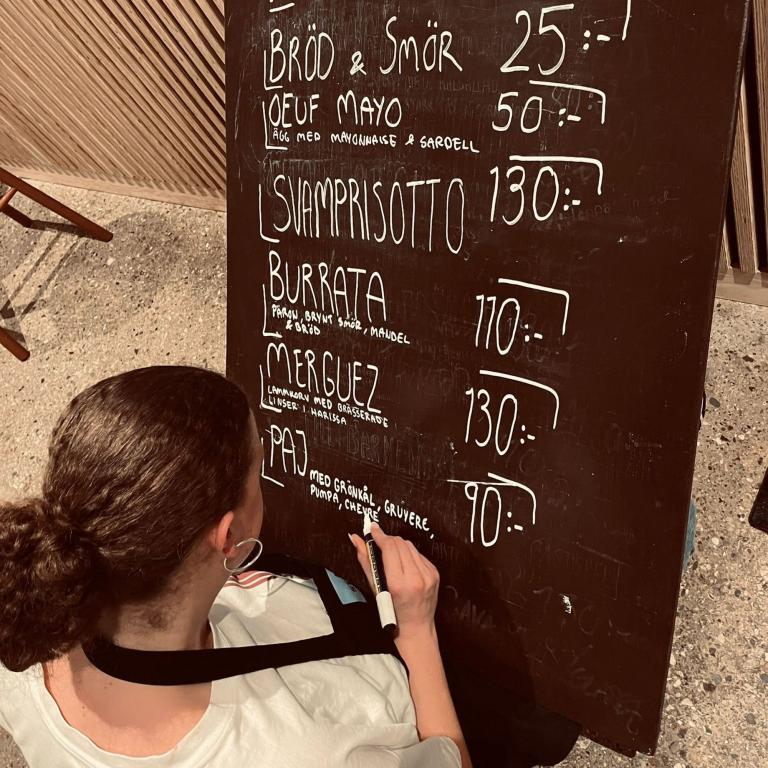 BRÖD & SMÖR 25:-
OEUF MAYO 50:-
ÄGG MED MAYONNAISE & SARDELL
SVAMPRISOTTO 130:-
BURRATA 110:-
PÄRON, BRYNT SMÖR, MANDEL
& BRÖD
MERGUEZ 130:-
LAMMKORV MED BRÄSSERADE
LINSER I HARISSA
PAJ 90:-
MED GRÖNKÅL, GRUYERE,
PUMPA, CHEVRE